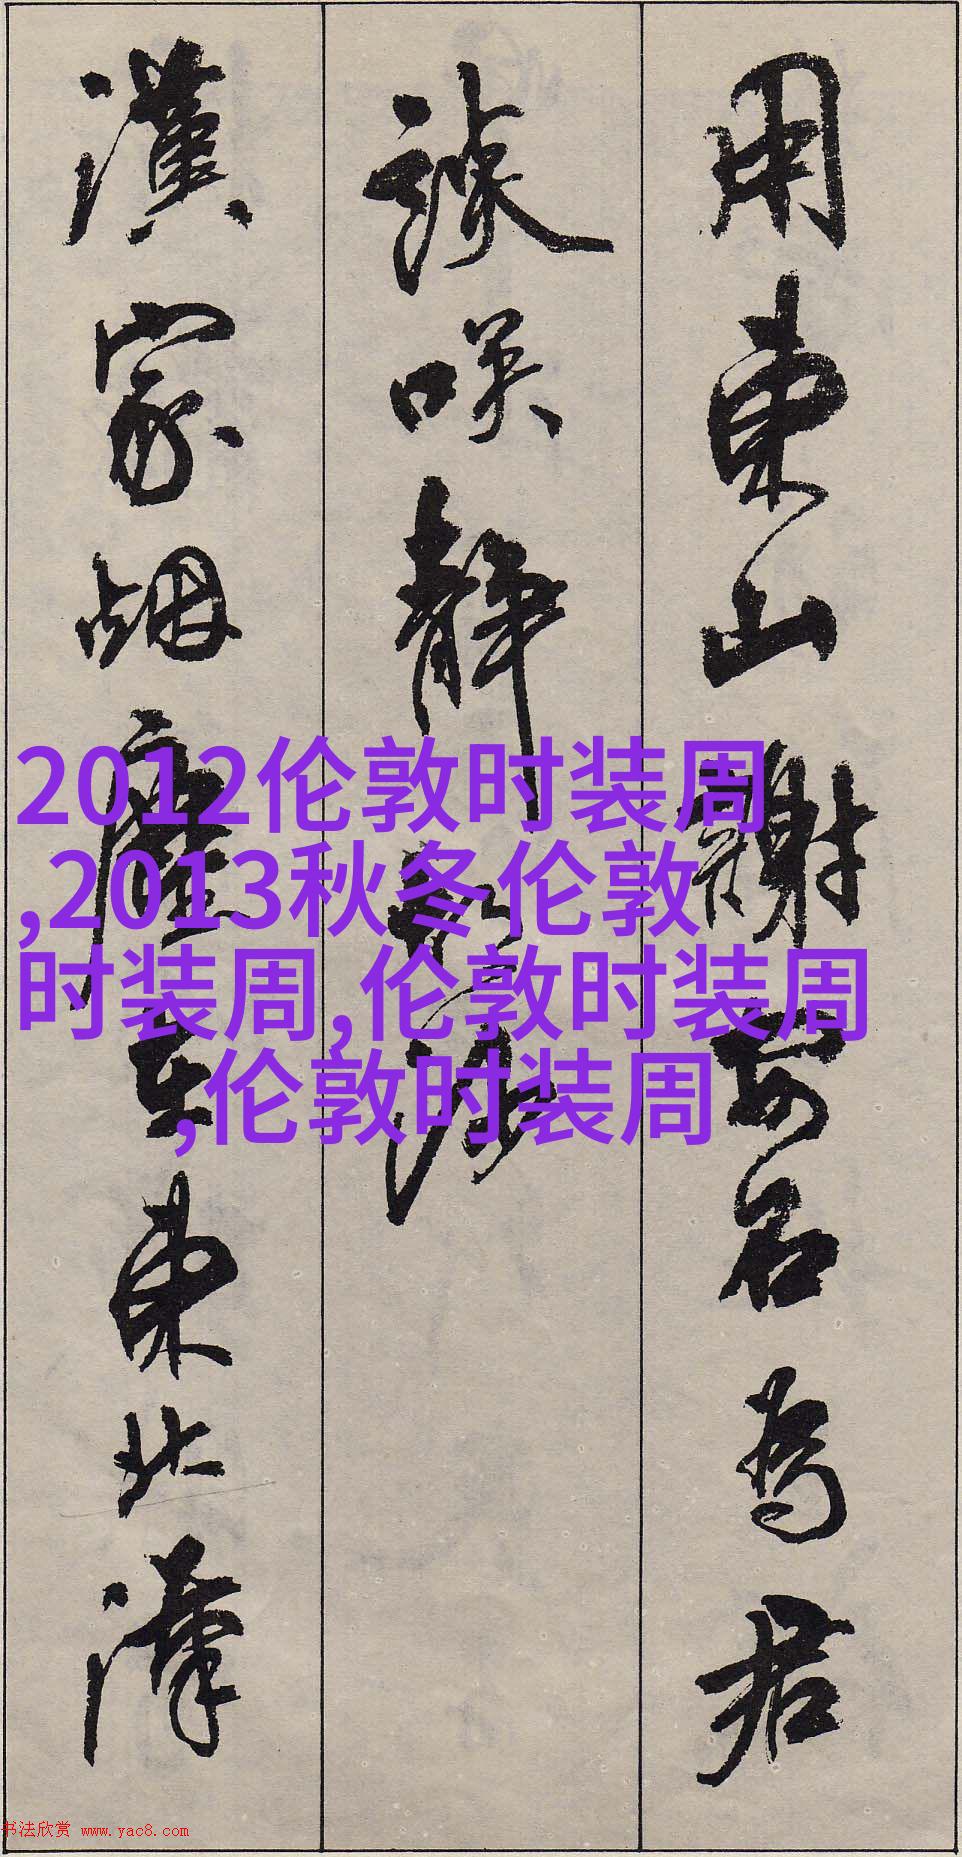 用東山謝安石為君
談咲靜胡沙
漢家烟塵在東北漢
2012伦敦时装周
,2013秋冬伦敦
时装周,伦敦时装周
,伦敦时装周
书法欣赏 www.yac8.com